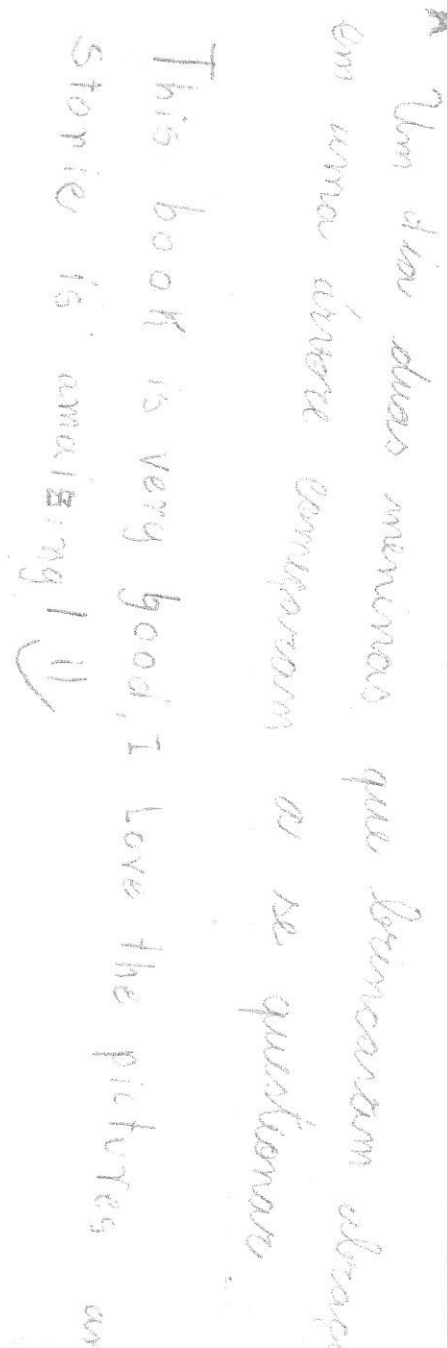 Um dia duas meninas que brincavam
em uma árvore começaram a se questionar...
This book is very good, I Love the pictures an
Storie is amaising! :)